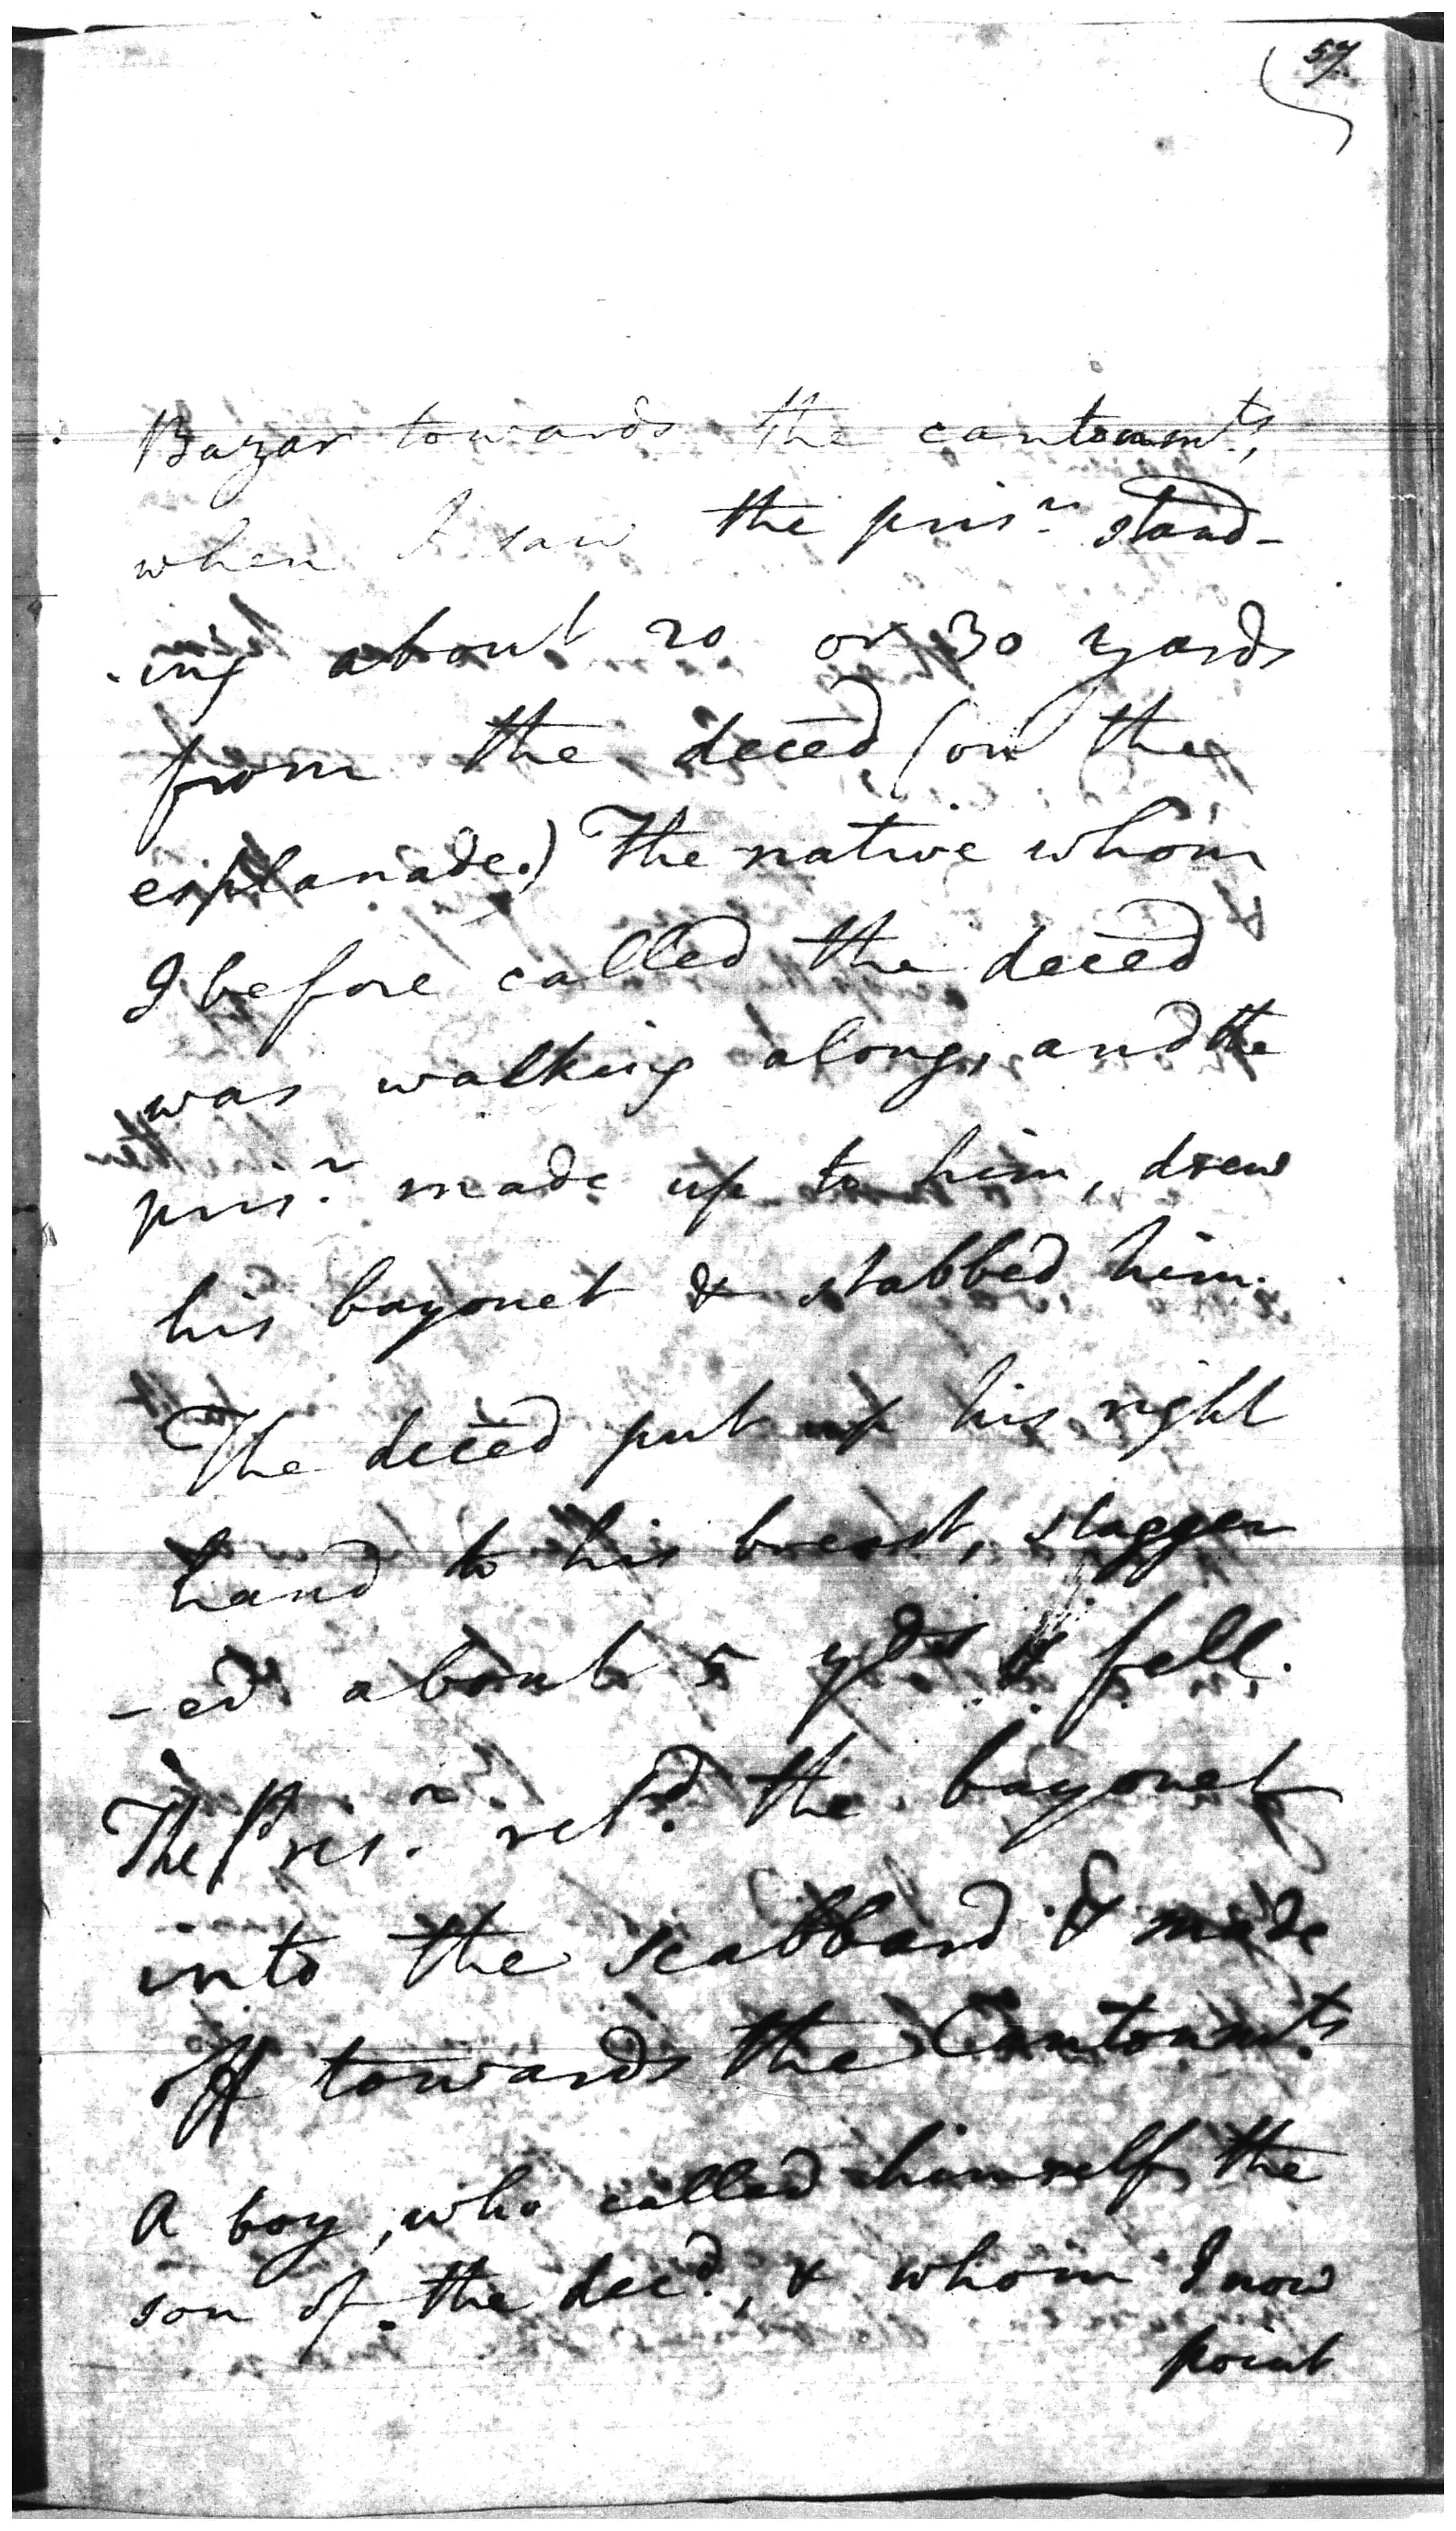 57
Bazar towards the cantonmts,
when I saw the prisr stand-
-ing about 20 or 30 yards
from the deced (on the
esplanade.) The native whom
I before called the deced
was walking along, and the
prisr made up to him, drew
his bayonet & stabbed him.
The deced put up his right
hand to his breast, stagger
-ed about 5 yds & fell.
The Prisr retd the bayonet
into the scabbard & made
off towards the Cantonmts
A boy, who called himself the
son of the decd, & whom I now
point